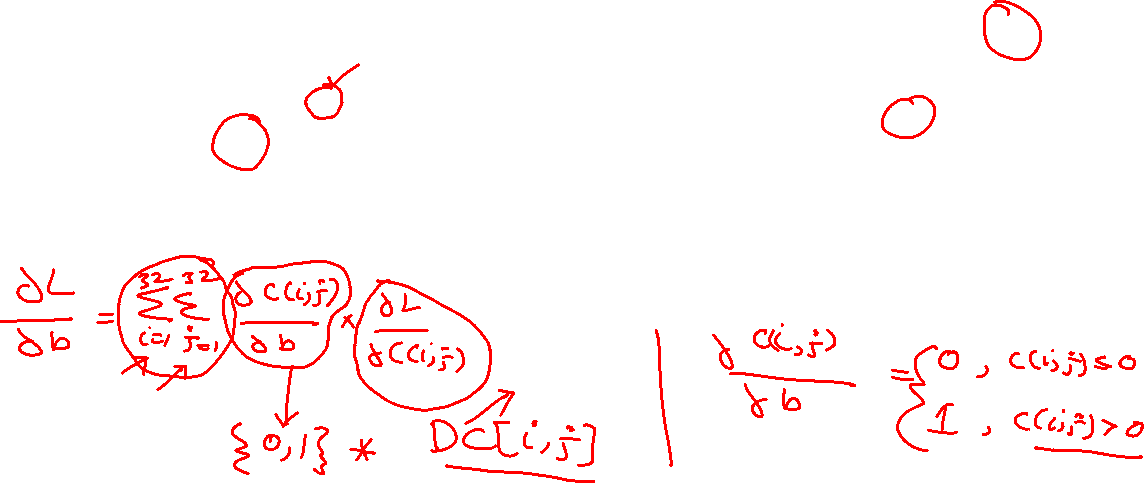 ∂L/∂b = Σ_{i=1}^{32} Σ_{j=1}^{32} ∂C(i,j)/∂b × ∂L/∂C(i,j)
{0,1} * DC[i,j]
∂C(i,j)/∂b = { 0, C(i,j) ≤ 0
1, C(i,j) > 0